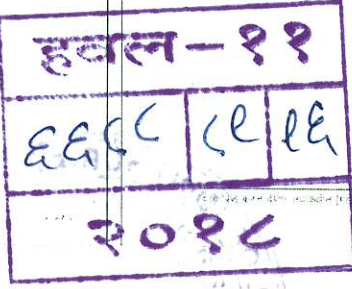 हवल-११
६६८८ ८९ ९६
२०१८